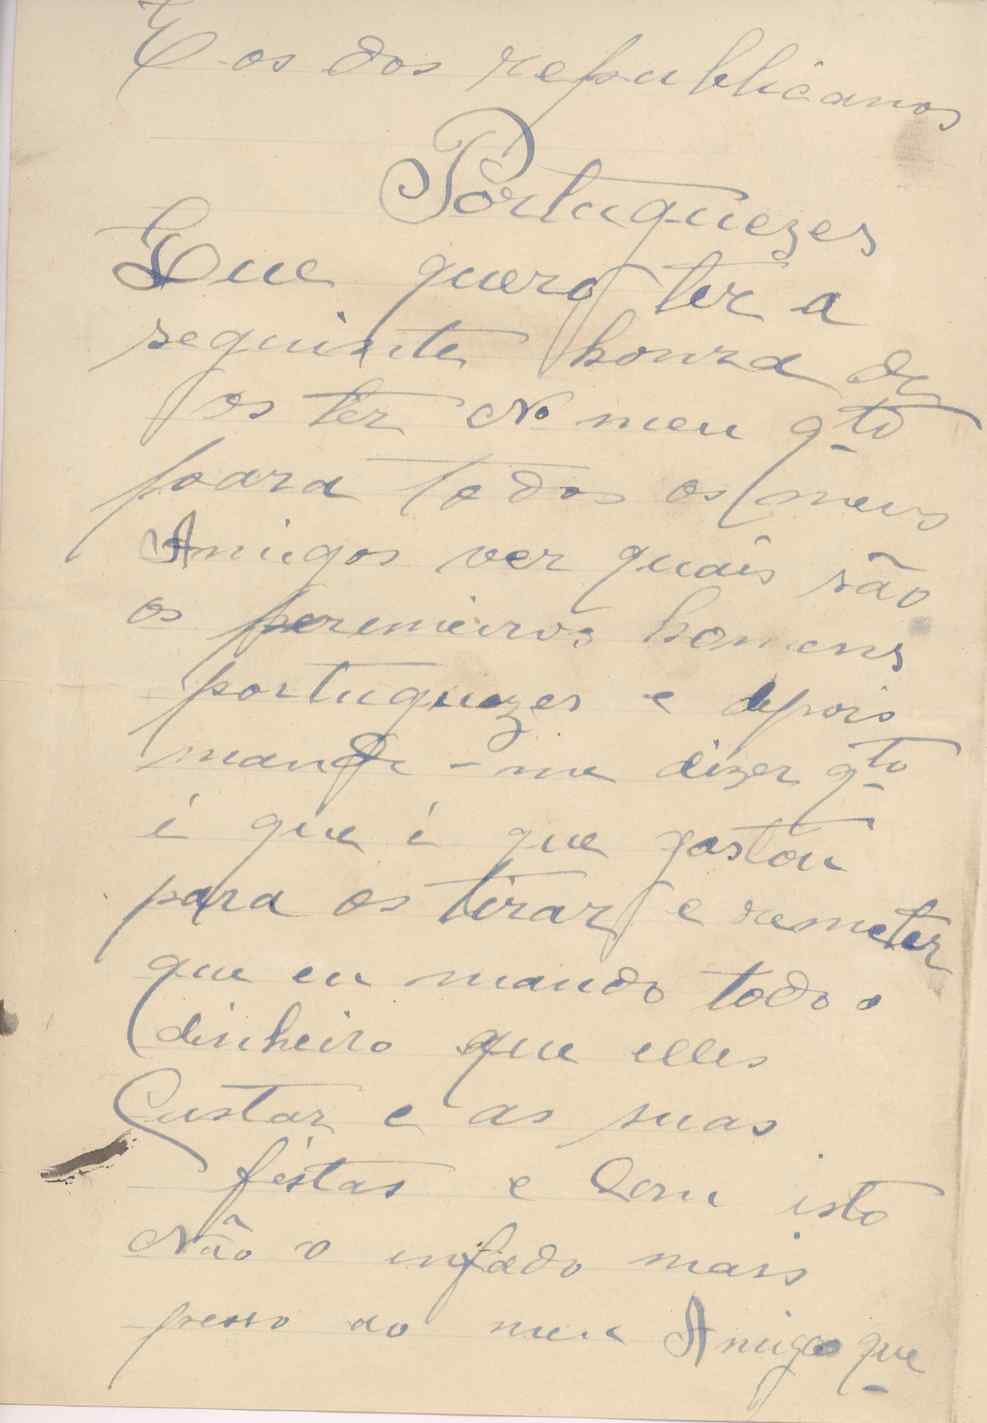 E os dos republicanos
Portuguezes
Que quero ter a
seguinte honra de
os ter No meu qto
para todos os meus
Amigos ver quais são
os peremeiros homens
portuguezes e depois
mande-me dizer qto
é que é que gastou
para os tirar e remeter
que eu mando todo o
dinheiro que elles
Custar e as suas
festas e Com isto
Não o enfado mais
pesso ao meu Amigo que